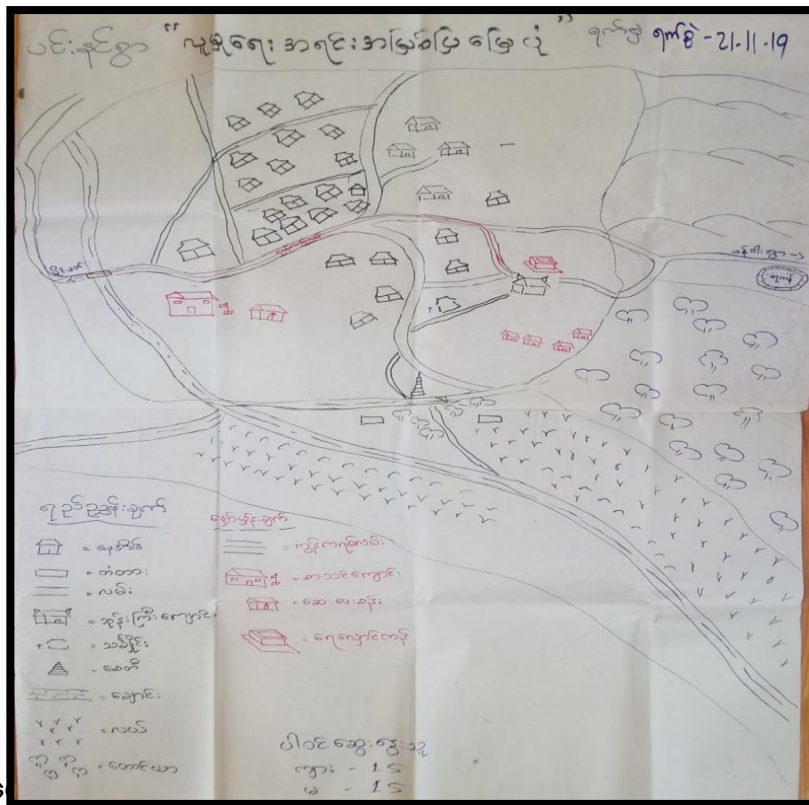 ပင်းနင်စွာ "လူမှုရေး အရင်းအမြစ်ပြ မြေပုံ" ရက်စွဲ ရက်စွဲ - 21.11.19
ရည်ညွှန်းချက်
= နေအိမ်
= တံတား
= လမ်း
= ဘုန်းကြီးကျောင်း
= စေတီ
= ချောင်း
= လယ်
= တောင်ယာ
မျှော်မှန်းချက်
= ကွန်ကရစ်လမ်း
= စာသင်ကျောင်း
= ဆေးပေးခန်း
= ရေလှောင်ကန်
ပါဝင်ဆွေးနွေးသူ
ကျား - 15
မ - 15